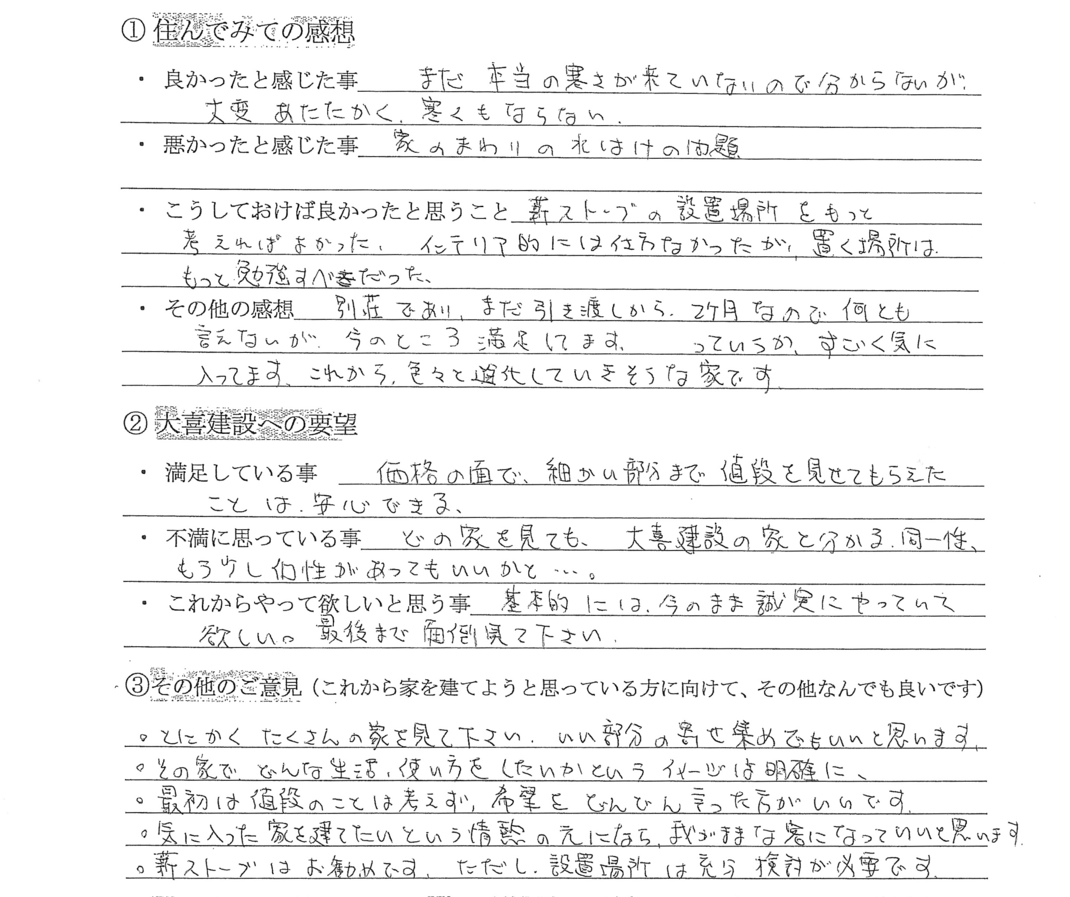 ① 住んでみての感想
・ 良かったと感じた事 まだ 本当の寒さが来ていないので分からないが、
大変 あたたかく、寒くもならない.
・ 悪かったと感じた事 家のまわりの水はけの問題
・ こうしておけば良かったと思うこと 薪ストーブの設置場所をもっと
考えればよかった、インテリア的には仕方なかったが、置く場所は、
もっと勉強すべきだった、
・ その他の感想 別荘であり、まだ引き渡しから、2ケ月なので何とも
言えないが、今のところ満足してます、 っていうか、すごく気に
入ってます、これから、色々と進化していきそうな家です.
② 大喜建設への要望
・ 満足している事 価格の面で、細かい部分まで値段を見せてもらえた
ことは、安心できる、
・ 不満に思っている事 どの家を見ても、大喜建設の家と分かる、同一性、
もう少し個性があってもいいかと…。
・ これからやって欲しいと思う事 基本的には、今のまま誠実にやっていて
欲しい。最後まで面倒見て下さい.
③その他のご意見（これから家を建てようと思っている方に向けて、その他なんでも良いです）
○とにかくたくさんの家を見て下さい. いい部分の寄せ集めでもいいと思います,
○その家で、どんな生活、使い方をしたいかというイメージは明確に、
○最初は値段のことは考えず、希望をどんどん言った方がいいです.
○気に入った家を建てたいという情熱の元になら、我がままな客になっていいと思います.
○薪ストーブはお勧めです、ただし、設置場所は充分検討が必要です.